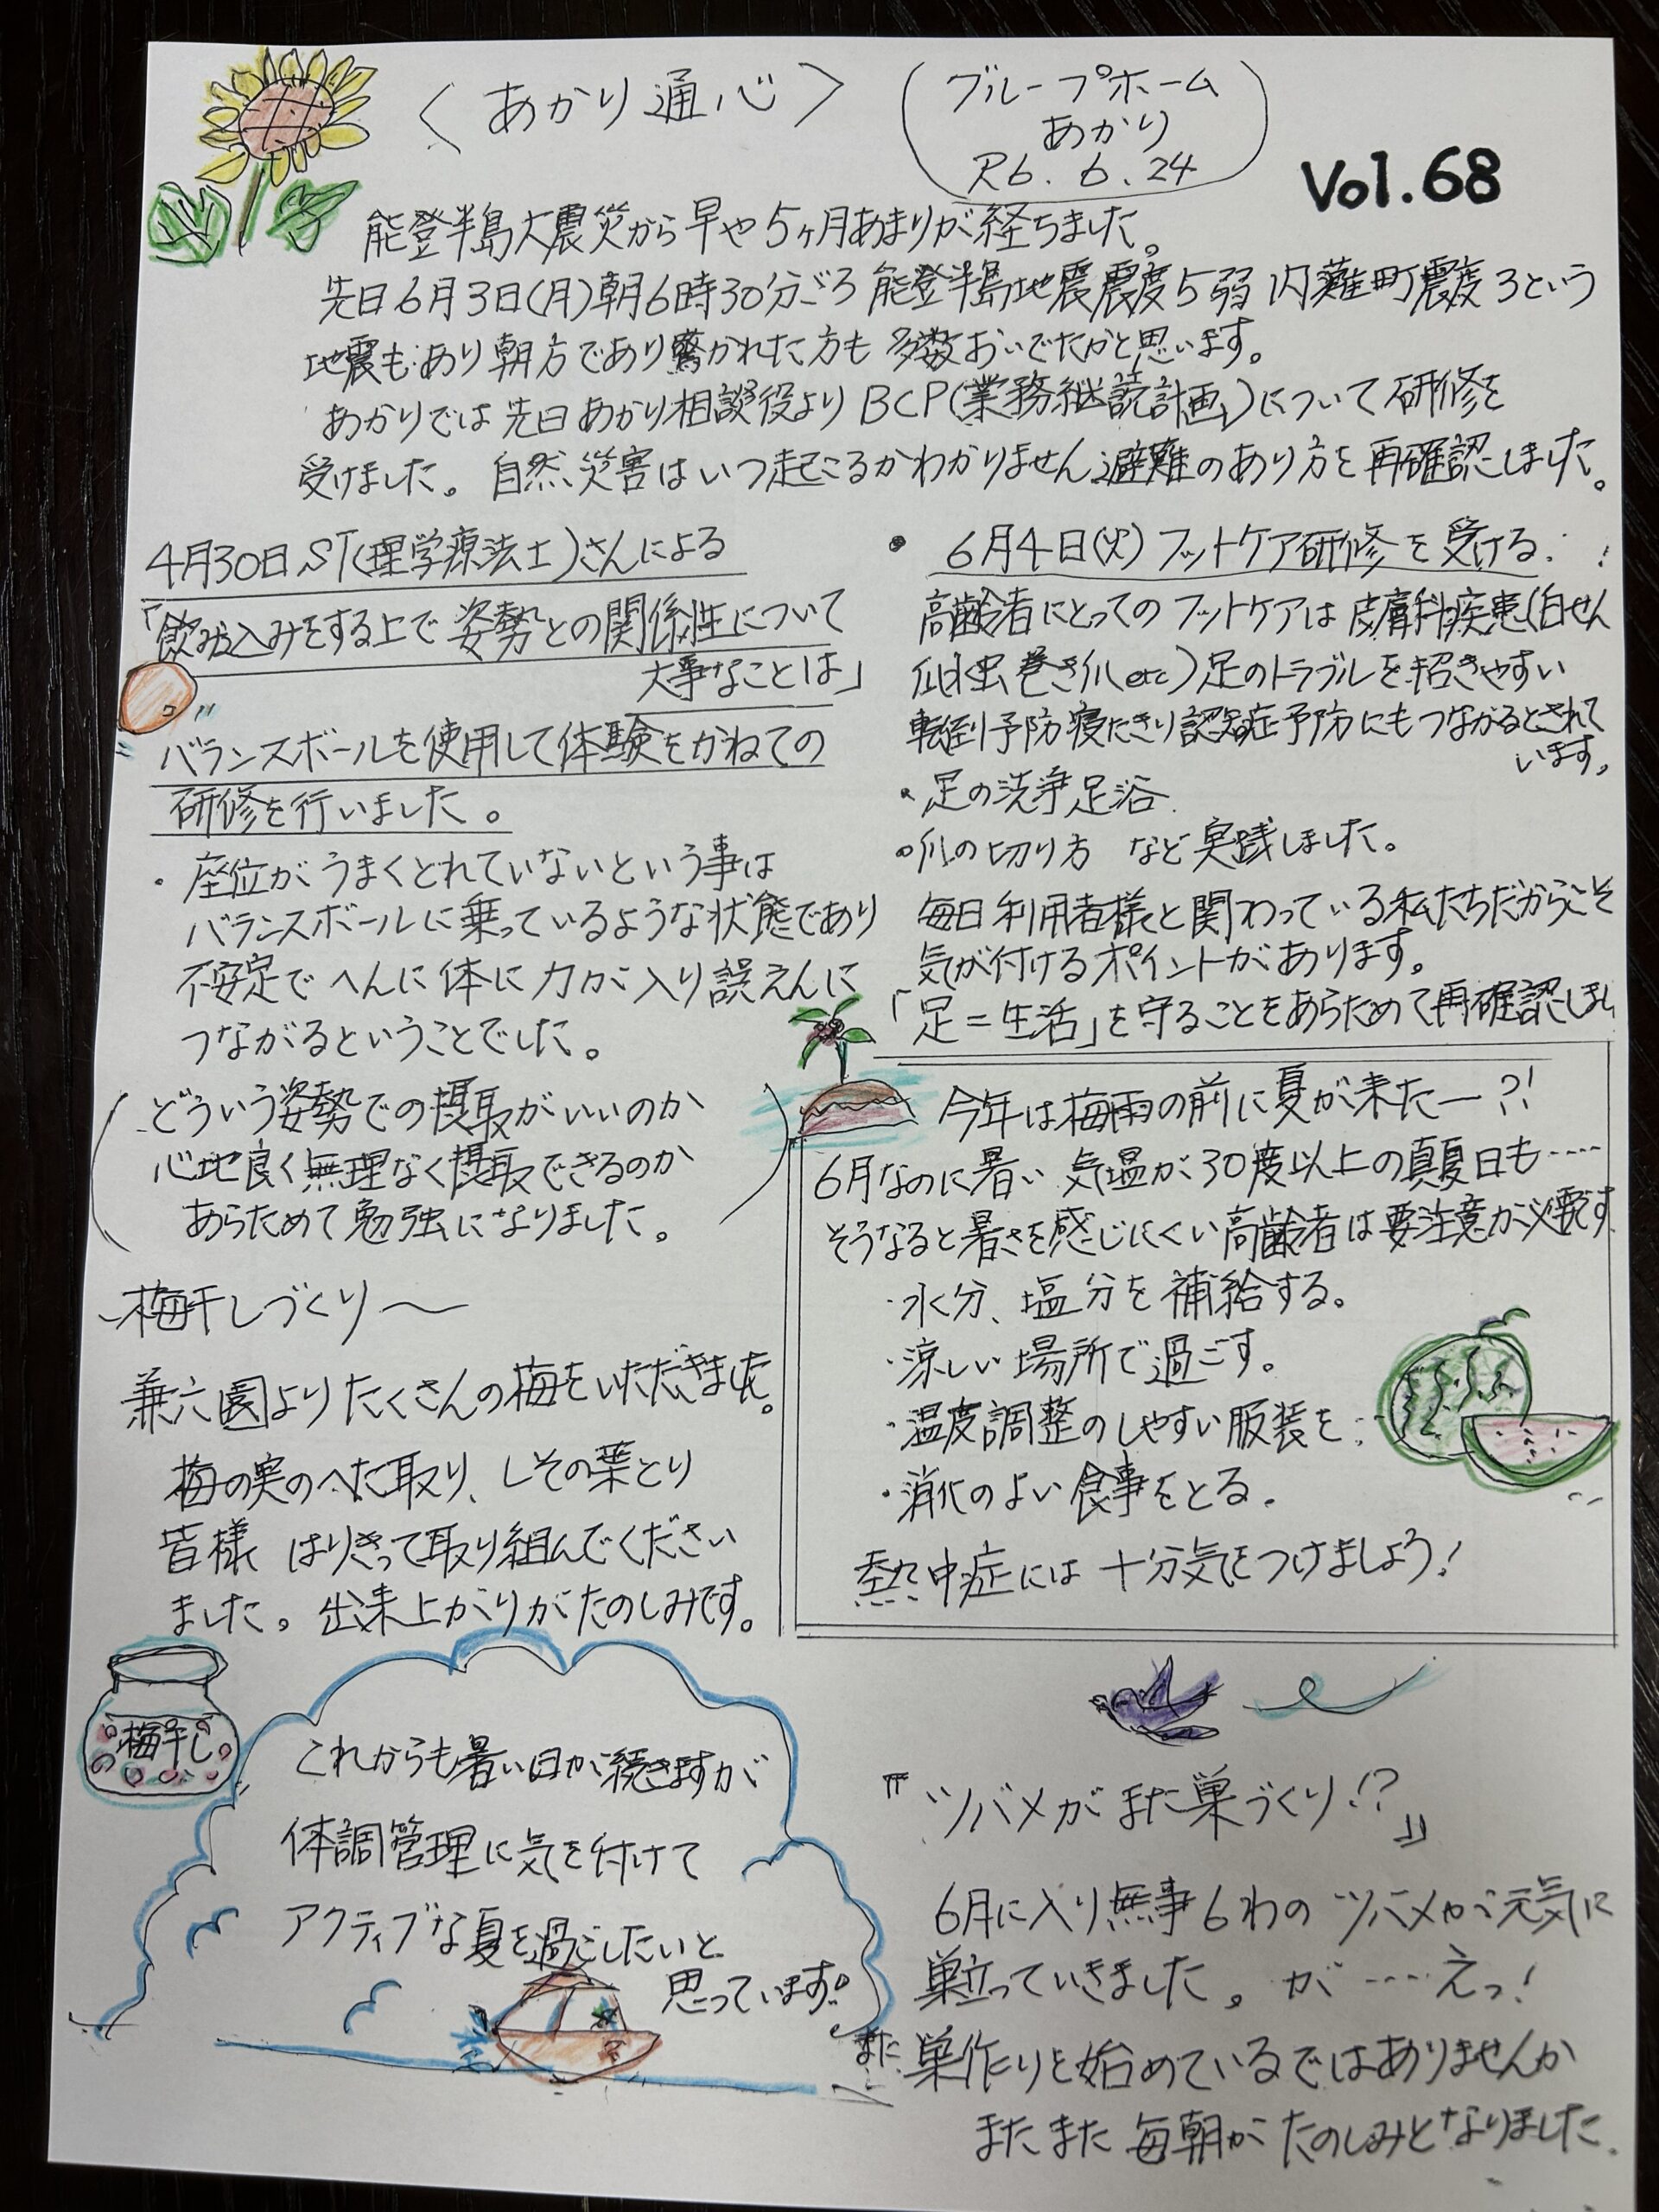 〈あかり通心〉
グループホーム
あかり
R6.6.24
Vol.68
能登半島大震災から早や5ヶ月あまりが経ちました。
先日6月3日(月)朝6時30分ごろ能登半島地震震度5弱 内灘町震度3という
地震もあり朝方であり驚かれた方も多数おいでたかと思います。
あかりでは先日あかり相談役よりBCP(業務継続計画)について研修を
受けました。自然災害はいつ起こるかわかりません避難のあり方を再確認しました。
4月30日ST(理学療法士)さんによる
「飲み込みをする上で姿勢との関係性について
大事なことは」
バランスボールを使用して体験をかねての
研修を行いました。
・座位がうまくとれていないという事は
バランスボールに乗っているような状態であり
不安定でへんに体に力が入り誤えんに
つながるということでした。
(どういう姿勢での摂取がいいのか
心地良く無理なく摂取できるのか
あらためて勉強になりました。)
～梅干しづくり～
兼六園よりたくさんの梅をいただきました。
梅の実のへた取り、しその葉とり
皆様 はりきって取り組んでください
ました。出来上がりがたのしみです。
梅干し
これからも暑い日が続きますが
体調管理に気を付けて
アクティブな夏を過ごしたいと
思っています。
・6月4日(火)フットケア研修を受ける
高齢者にとってのフットケアは皮膚科疾患(白せん
爪水虫巻き爪etc)足のトラブルを招きやすい
転倒予防寝たきり認知症予防にもつながるとされて
います。
・足の洗浄足浴
・爪の切り方 など実践しました。
毎日利用者様と関わっている私たちだからこそ
気が付けるポイントがあります。
「足=生活」を守ることをあらためて再確認しまし
今年は梅雨の前に夏が来たー?!
6月なのに暑い 気温が30度以上の真夏日も……
そうなると暑さを感じにくい高齢者は要注意が必要です
・水分、塩分を補給する。
・涼しい場所で過ごす。
・温度調整のしやすい服装を
・消化のよい食事をとる。
熱中症には十分気をつけましょう!
『ツバメがまた巣づくり!?』
6月に入り無事6わのツバメが元気に
巣立っていきました。が……えっ!
また巣作りを始めているではありませんか
またまた毎朝がたのしみとなりました。